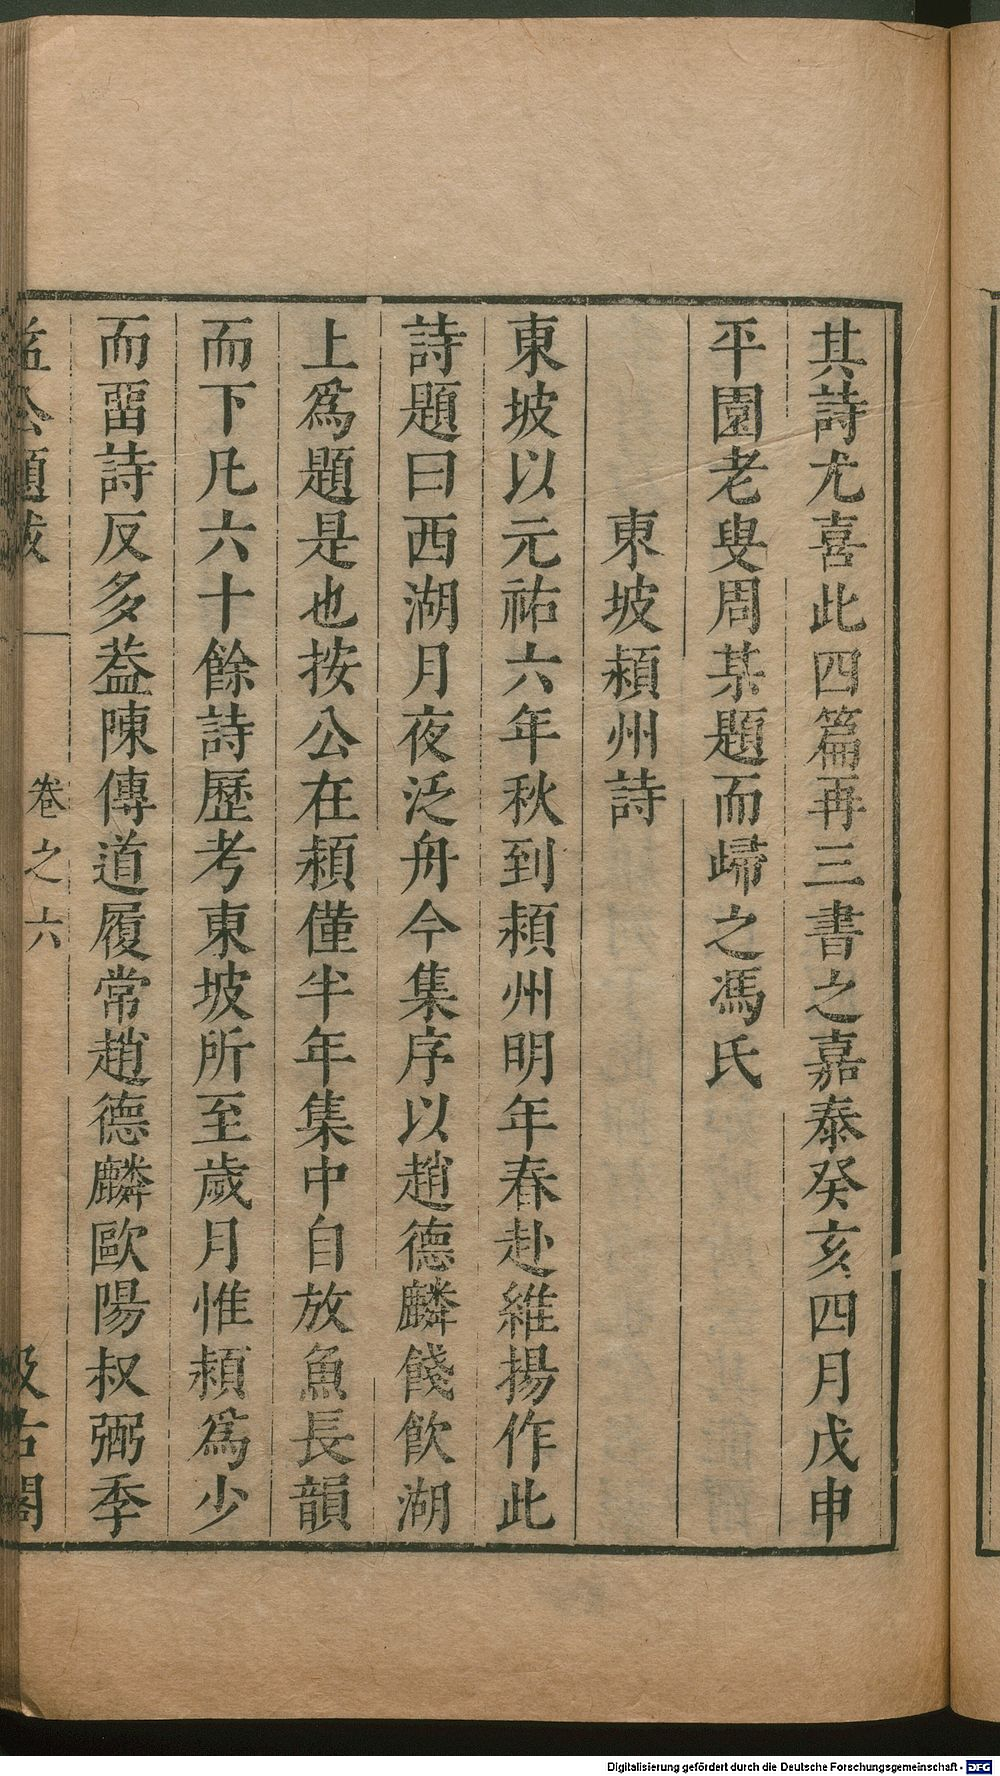 其詩尤喜此四篇再三書之嘉泰癸亥四月戊申
平園老叟周某題而歸之馮氏
東坡潁州詩
東坡以元祐六年秋到潁州明年春赴維揚作此
詩題曰西湖月夜泛舟今集序以趙德麟餞飲湖
上爲題是也按公在潁僅半年集中自放魚長韻
而下凡六十餘詩歷考東坡所至歲月惟潁爲少
而畱詩反多葢陳傳道履常趙德麟歐陽叔弼季
益公題跋 卷之六 汲古閣
Digitalisierung gefördert durch die Deutsche Forschungsgemeinschaft - DFG